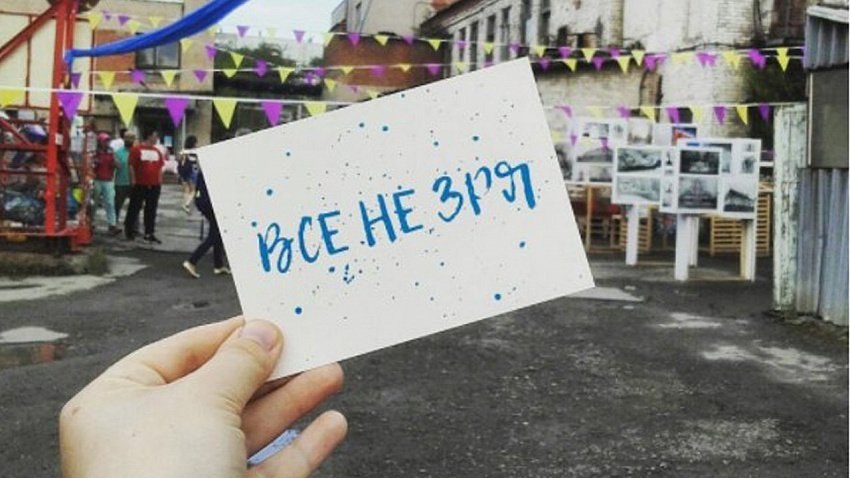 ВСЕ НЕ ЗРЯ